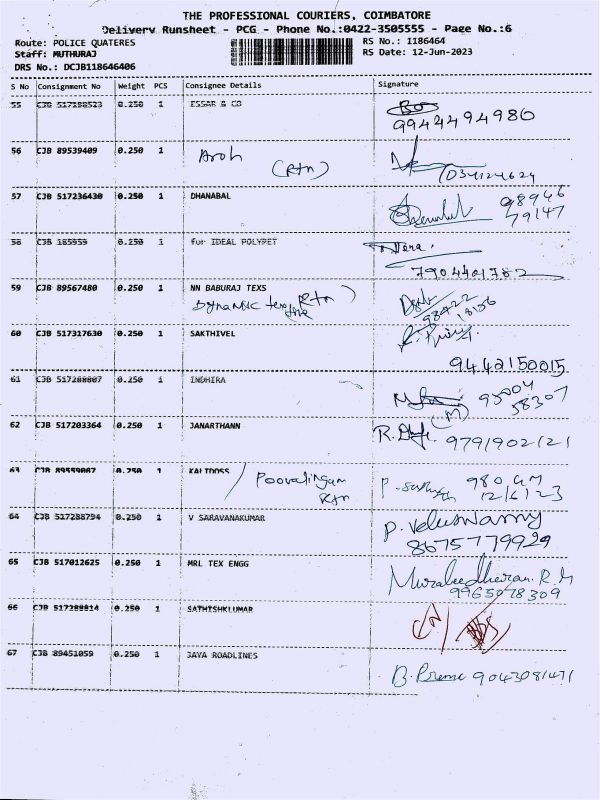 THE PROFESSIONAL COURIERS, COIMBATORE
Delivery Runsheet - PCG - Phone No.:0422-3505555 - Page No.:6
Route: POLICE QUATERES RS No.: 1186464
Staff: MUTHURAJ RS Date: 12-Jun-2023
DRS No.: DCJB118646406
S No Consignment No Weight PCS Consignee Details Signature
55 CJB 517288523 0.250 1 ESSAR & CO
9944494980
56 CJB 89539409 0.250 1
(Rtn)
57 CJB 517236430 0.250 1 DHANABAL 98946
79147
58 CJB 165959 0.250 1 for IDEAL POLYPET
7904401782
59 CJB 89567480 0.250 1 NN BABURAJ TEXS
Dynamic Rtn) 98422
60 CJB 517317630 0.250 1 SAKTHIVEL
9442150015
61 CJB 517288807 0.250 1 INDHIRA
95004
58307
62 CJB 517203364 0.250 1 JANARTHANN (M)
9791902121
63 CJB 89559087 0.250 1 KALIDOSS / Poovalingam
Rtn 12/6/23
64 CJB 517288794 0.250 1 V SARAVANAKUMAR P. Veluswamy
8675779929
65 CJB 517012625 0.250 1 MRL TEX ENGG Muraleedharan. R. M
9965078309
66 CJB 517288814 0.250 1 SATHISHKLUMAR
67 CJB 89451059 0.250 1 JAYA ROADLINES
B. Preme 9043081471